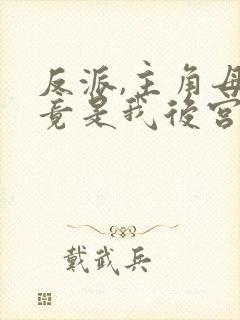 反派,主角母
竟是我後宮
戴武兵